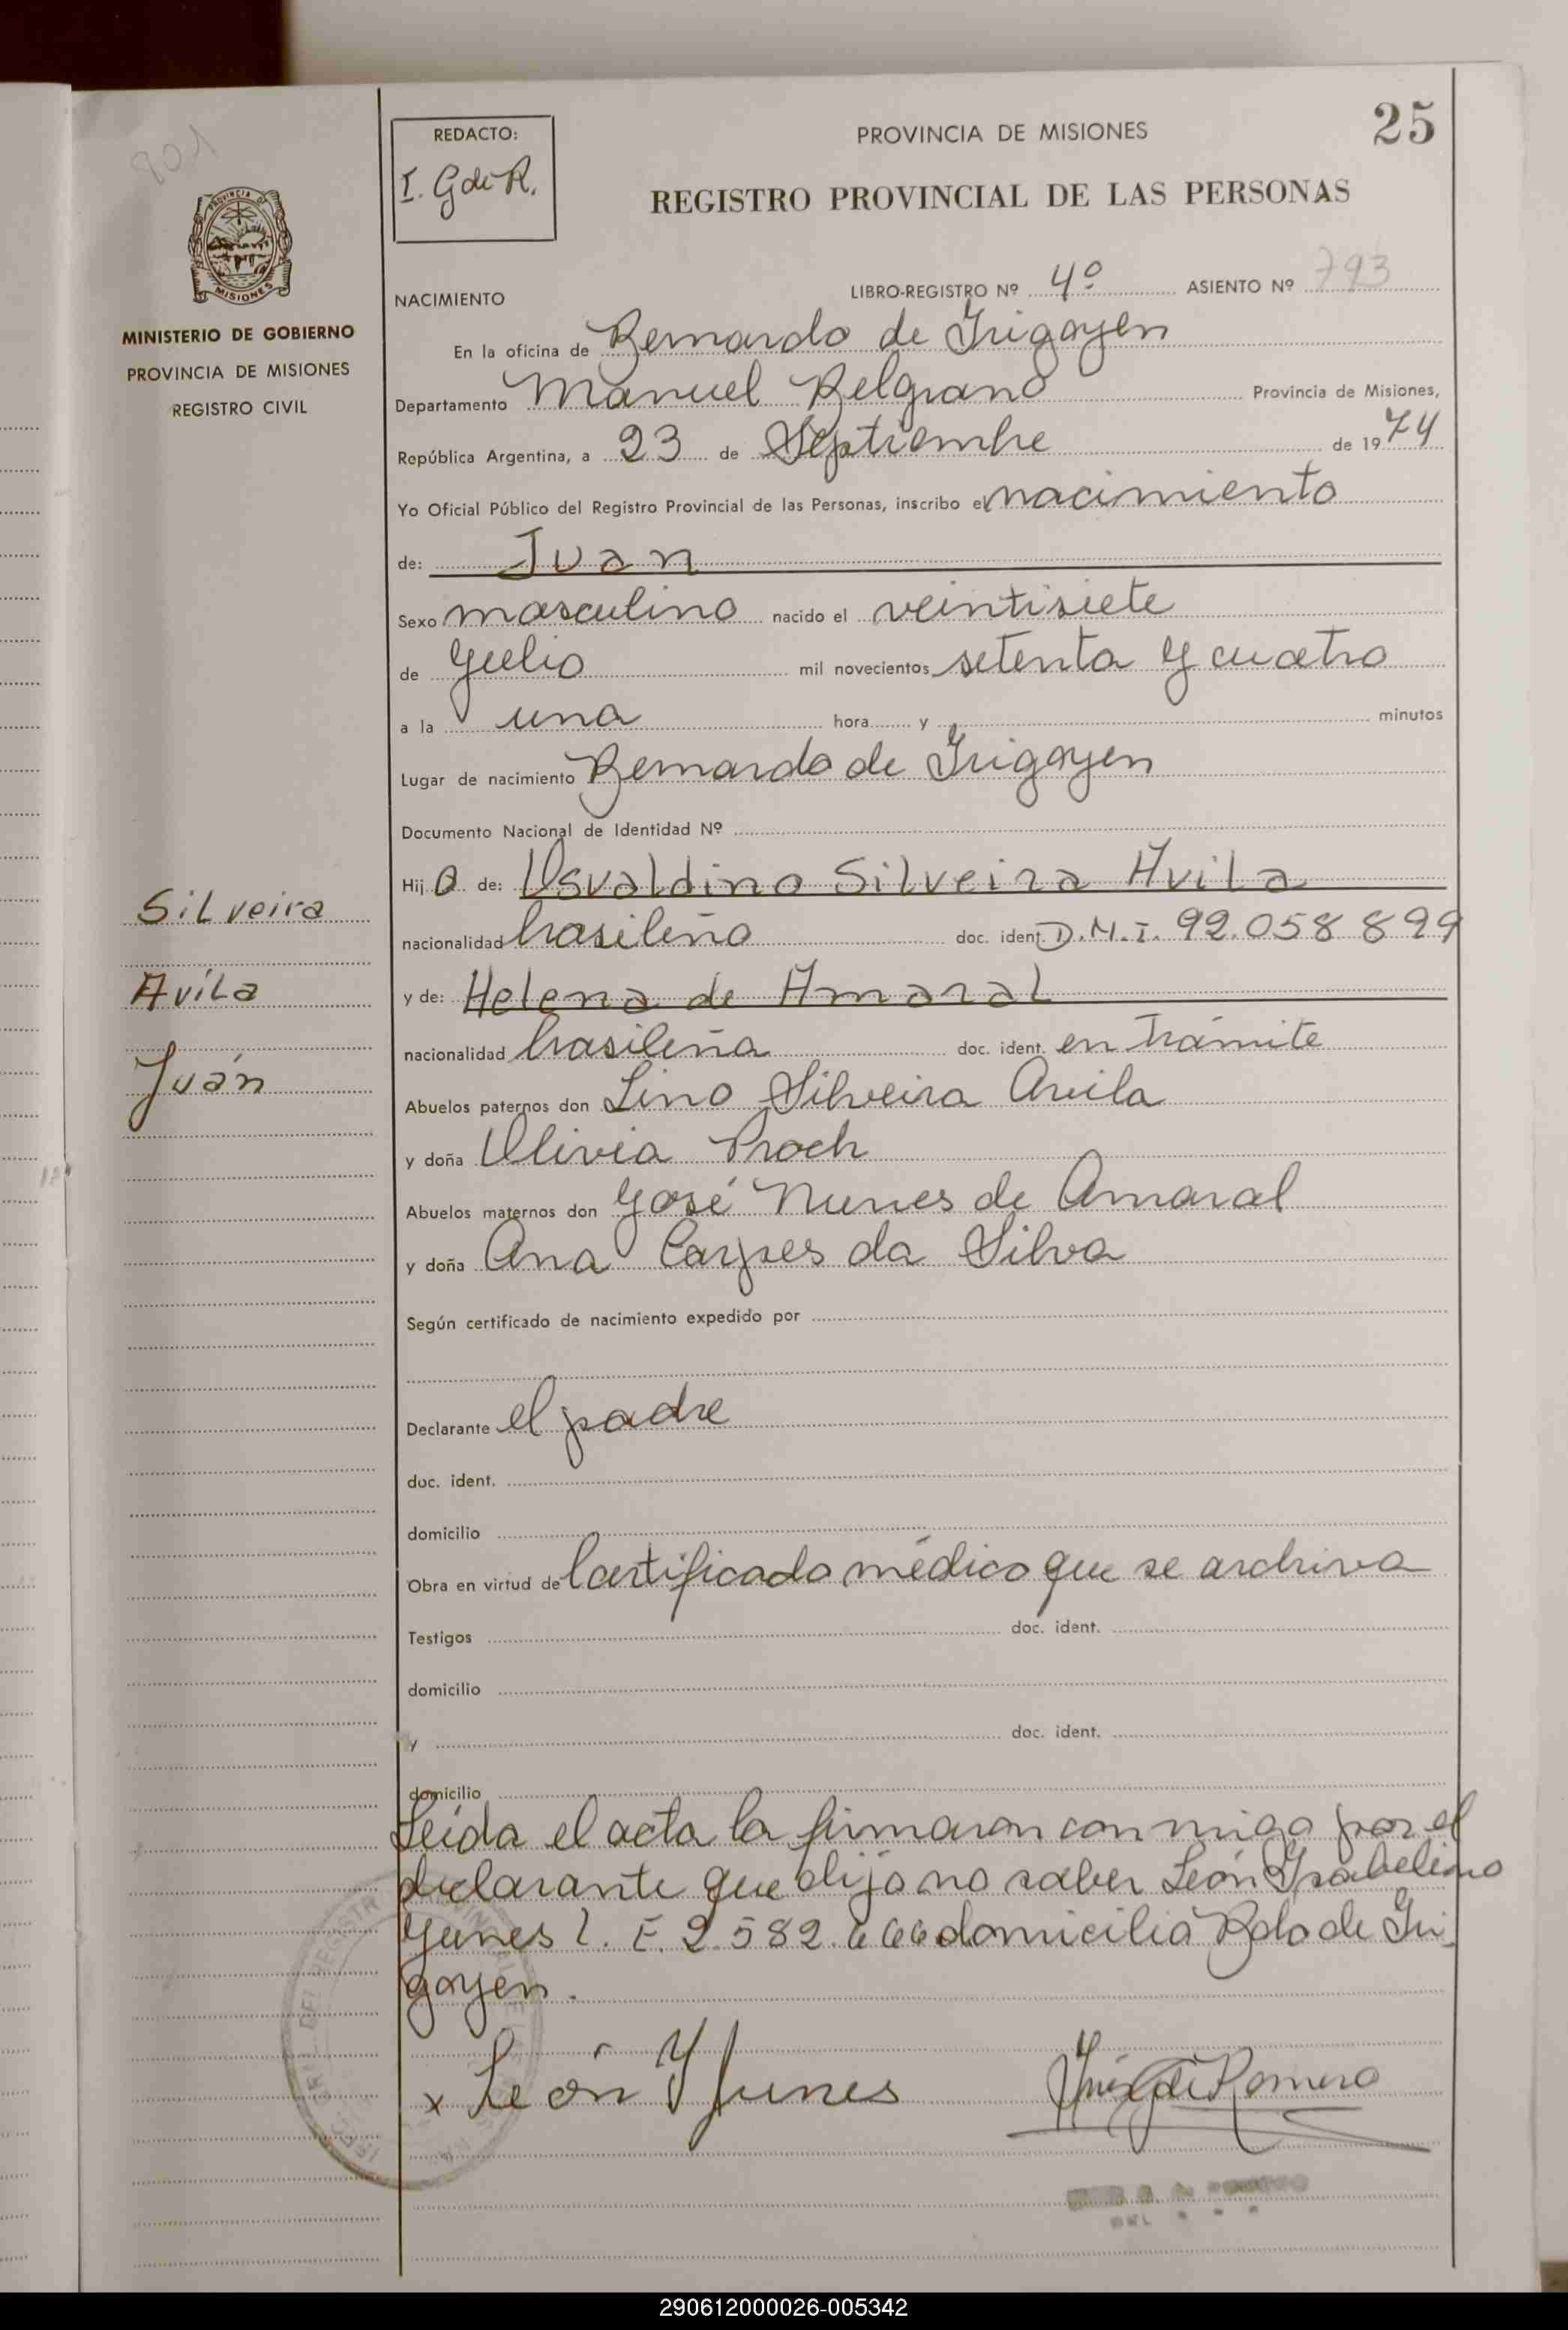 801
25
REDACTO:
I. G de R.
PROVINCIA DE MISIONES
REGISTRO PROVINCIAL DE LAS PERSONAS
PROVINCIA D
MISIONES
MINISTERIO DE GOBIERNO
PROVINCIA DE MISIONES
REGISTRO CIVIL
NACIMIENTO LIBRO-REGISTRO Nº 4º ASIENTO Nº 793
En la oficina de Bernardo de Irigoyen
Departamento Manuel Belgrano Provincia de Misiones,
República Argentina, a 23 de Septiembre de 1974
Yo Oficial Público del Registro Provincial de las Personas, inscribo el nacimiento
de: Juan
Sexo masculino nacido el veintisiete
de Julio mil novecientos setenta y cuatro
a la una hora y minutos
Lugar de nacimiento Bernardo de Irigoyen
Documento Nacional de Identidad Nº
Hijo de: Osvaldino Silveira Avila
Silveira
nacionalidad brasileño doc. ident. D.N.I. 92.058 899
Avila
y de: Helena de Amaral
nacionalidad brasileña doc. ident. en trámite
Juán
Abuelos paternos don Lino Silveira Avila
y doña Olivia Proch
Abuelos maternos don José Nunes de Amaral
y doña Ana Carpes da Silva
Según certificado de nacimiento expedido por
Declarante el padre
doc. ident.
domicilio
Obra en virtud de Certificado médico que se archiva
Testigos doc. ident.
domicilio
y doc. ident.
domicilio
Leída el acta la firmaron con migo por el
declarante que dijo no saber León Ysabelino
Yunes L. E. 2.582.666 domicilia Bdo de Iri
goyen.
x León Y Junes Inés G de Romero
290612000026-005342